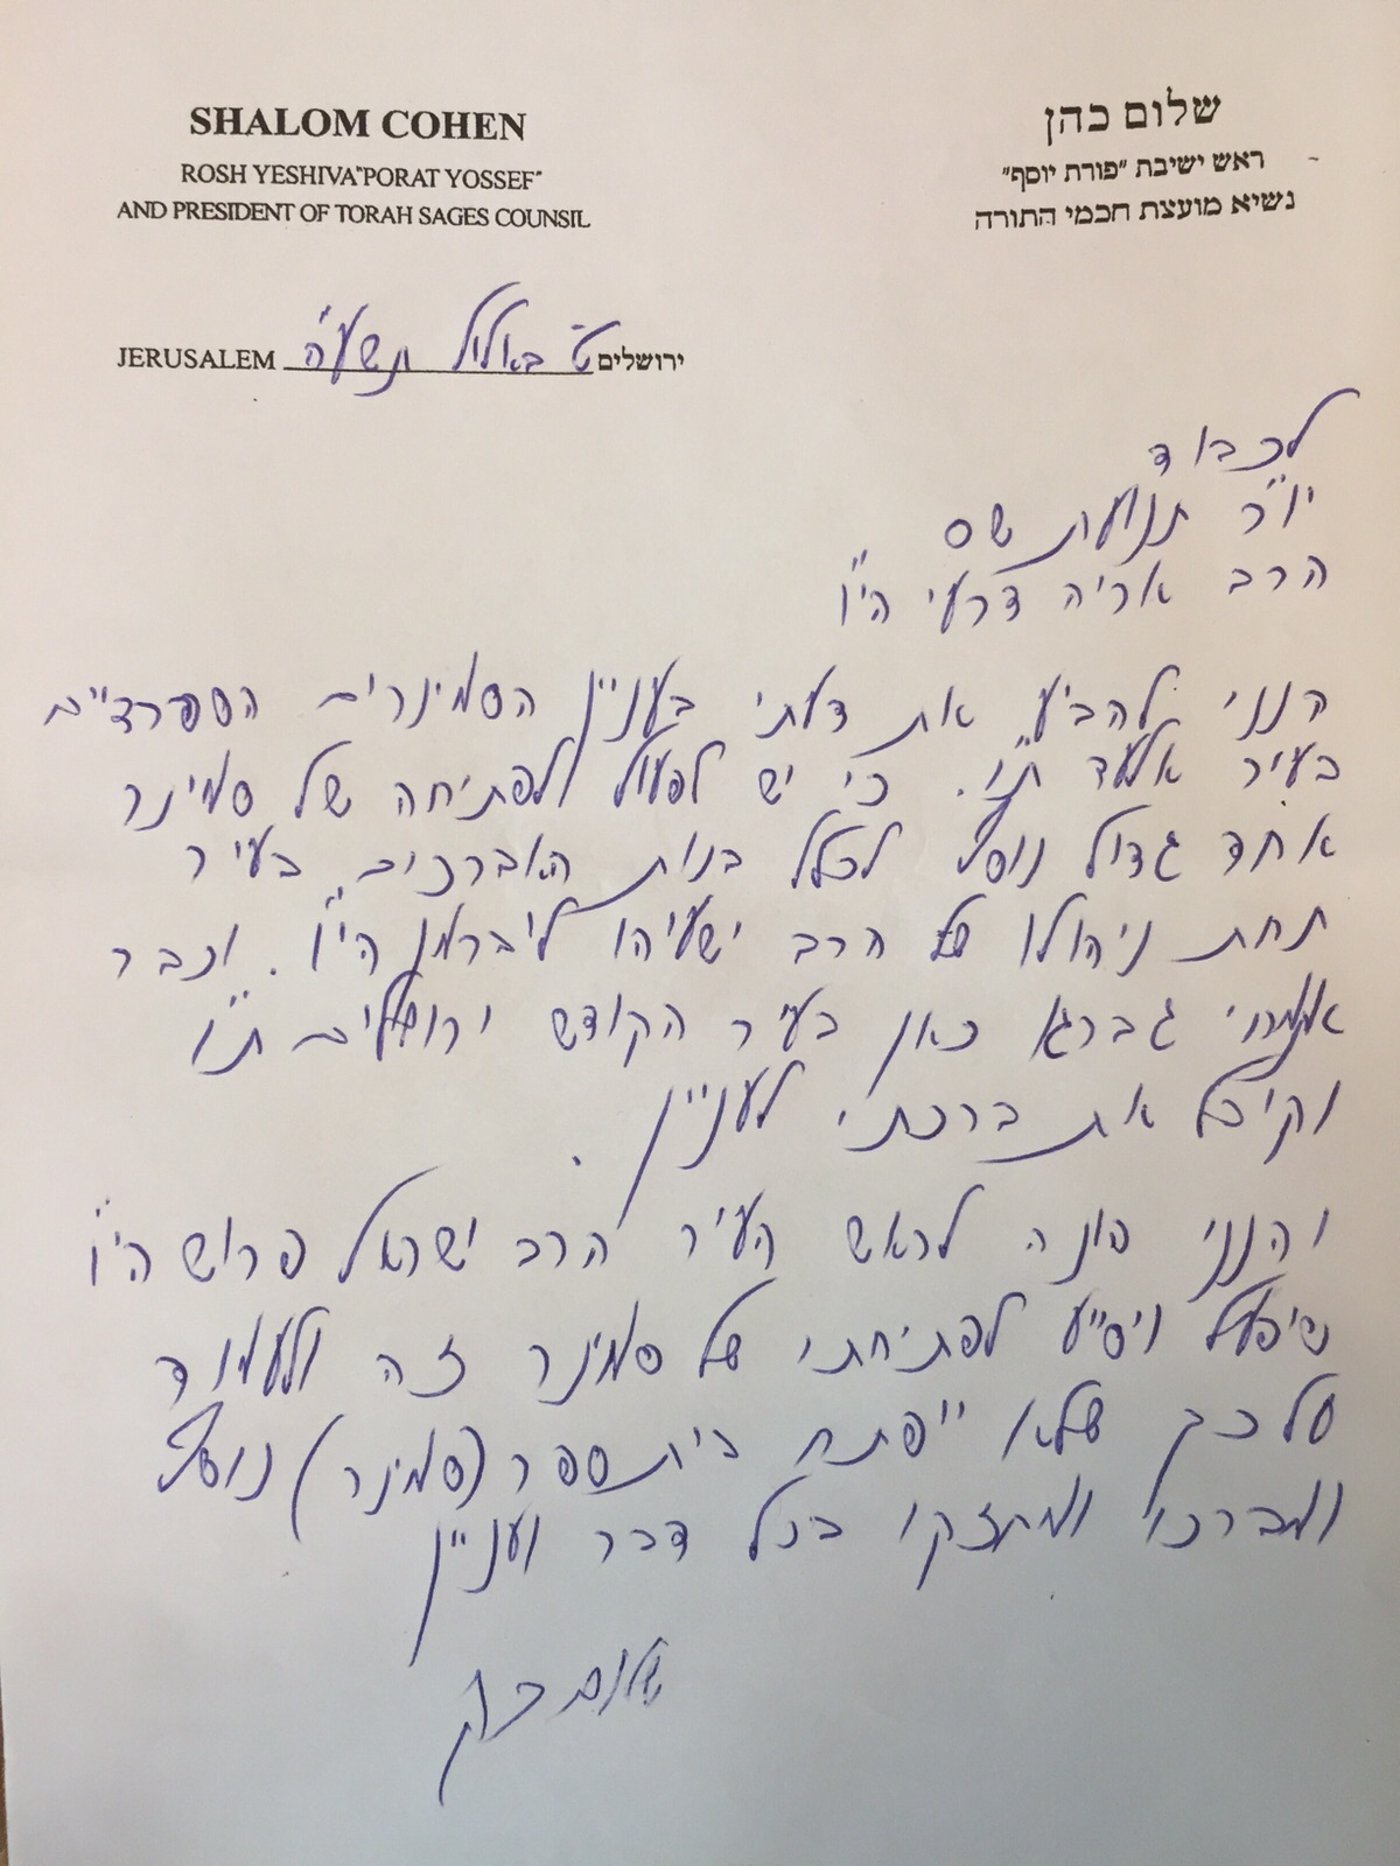 SHALOM COHEN
ROSH YESHIVA"PORAT YOSSEF"
AND PRESIDENT OF TORAH SAGES COUNSIL
שלום כהן
ראש ישיבת "פורת יוסף"
נשיא מועצת חכמי התורה
JERUSALEM ט' באלול תשע"ה ירושלים
לכבוד
יו"ר תנועת שס
הרב אריה דרעי הי"ו
הנני להביע את דעתי בעניין הסמינרים הספרדיים
בעיר אלעד ת"ו. כי יש לפעול ולפתיחה של סמינר
אחד גדול נוסף לכלל בנות האברכים בעיר
תחת ניהולו של הרב ישעיהו ליברמן הי"ו. וכבר
גברא כאן בעיר הקודש ירושלים ת"ו
וקיבל את ברכתי לעניין.
והנני פונה לראש העיר הרב ישראל פרוש הי"ו
שיפעל ויסייע לפתיחתו של סמינר זה ולעמוד
על כך שלא ייפתח בית ספר (סמינר) נוסף
בכל דבר ועניין
שלום כהן